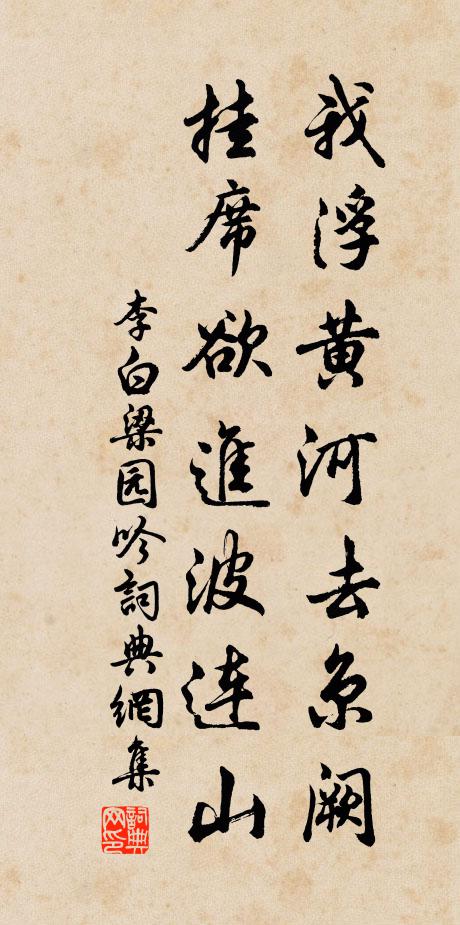 我浮黄河去京阙
挂席欲進波連山
李白梁园吟詞典網集
詞典
网印